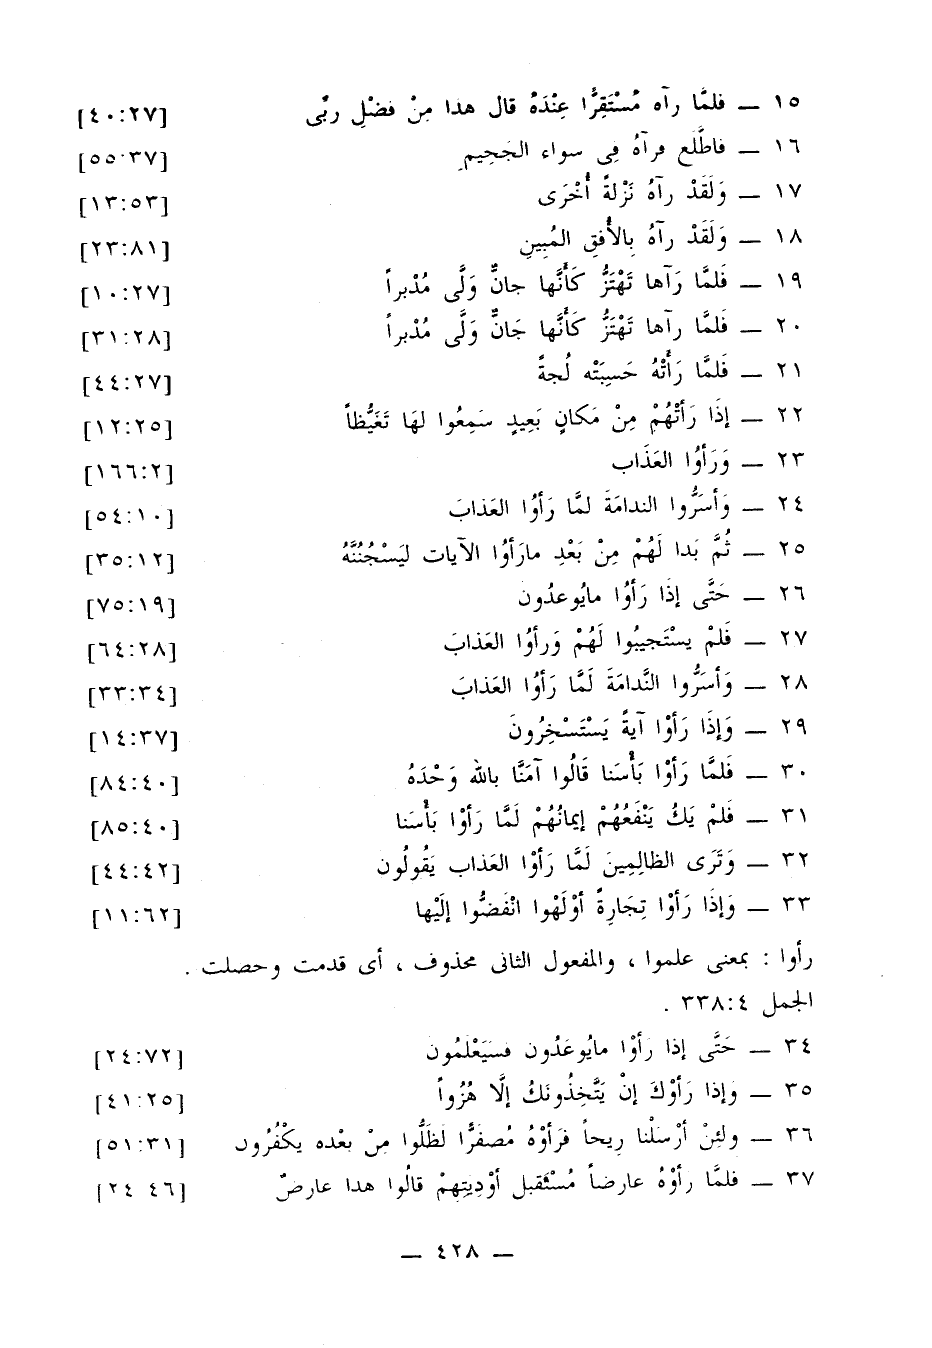 ١٥ — فلمَّا رآه مُسْتَقِرًّا عِنْدَهُ قال هذا مِنْ فضْلِ ربِّى [٤٠:٢٧]
١٦ — فاطَّلَع فرآهُ فِى سواء الجَحِيمِ [٥٥:٣٧]
١٧ — وَلَقَدْ رآهُ نَزْلةً أُخْرَى [١٣:٥٣]
١٨ — وَلَقَدْ رآهُ بِالأُفقِ المُبِينِ [٢٣:٨١]
١٩ — فَلمَّا رَآها تَهْتَزُّ كَأَنَّها جانٌّ وَلَّى مُدْبراً [١٠:٢٧]
٢٠ — فَلمَّا رآها تَهْتَزُّ كَأَنَّها جَانٌّ وَلَّى مُدْبراً [٣١:٢٨]
٢١ — فَلمَّا رَأَتْهُ حَسِبَتْه لُجةً [٤٤:٢٧]
٢٢ — إذَا رَأَتْهُمْ مِنْ مَكانٍ بَعِيدٍ سَمِعُوا لهَا تَغَيُّظاً [١٢:٢٥]
٢٣ — وَرَأوُا العَذَاب [١٦٦:٢]
٢٤ — وَأسَرُّوا الندامَةَ لمَّا رَأوُا العَذابَ [٥٤:١٠]
٢٥ — ثُمَّ بَدا لَهُمْ مِنْ بَعْدِ مارَأوُا الآيات لَيَسْجُنُنَّهُ [٣٥:١٢]
٢٦ — حَتَّى إذَا رَأوُا مايُوعدُون [٧٥:١٩]
٢٧ — فَلمْ يسْتَجيبُوا لَهُمْ وَرأوُا العَذابَ [٦٤:٢٨]
٢٨ — وَأسَرُّوا النَّدامَةَ لَمَّا رَأوُا العَذابَ [٣٣:٣٤]
٢٩ — وَإذَا رَأوْا آيةً يَسْتَسْخِرُونَ [١٤:٣٧]
٣٠ — فَلمَّا رَأوْا بَأْسَنا قَالُوا آمَنَّا بالله وَحْدَهُ [٨٤:٤٠]
٣١ — فَلمْ يَكُ يَنْفَعُهُمْ إيمانُهُمْ لَمَّا رَأوْا بَأْسَنا [٨٥:٤٠]
٣٢ — وَتَرَى الظالِمِينَ لَمَّا رَأوُا العَذاب يَقُولُون [٤٤:٤٢]
٣٣ — وَإذَا رَأوْا تِجَارةً أوْلَهْوا انْفَضُّوا إلَيْها [١١:٦٢]
رأوا : بمعنى علموا ، والمفعول الثانى محذوف ، أى قدمت وحصلت .
الجمل ٣٣٨:٤ .
٣٤ — حَتَّى إذا رأوْا مايُوعَدُون فسَيَعْلمُون [٢٤:٧٢]
٣٥ — وَإذا رَأوْكَ إنْ يَتَّخِذُونَكُ إلَّا هُزُواً [٤١:٢٥]
٣٦ — ولئِنْ أرْسَلْنا رِيحاً فَرأوْهُ مُصفرًّا لظَلُّوا مِنْ بعْده يكْفُرُون [٥١:٣١]
٣٧ — فلمَّا رأوْهُ عارضاً مُسْتَقبل أوْدِيتِهمْ قالُوا هذا عارضٌ [٢٤ ٤٦]
— ٤٢٨ —